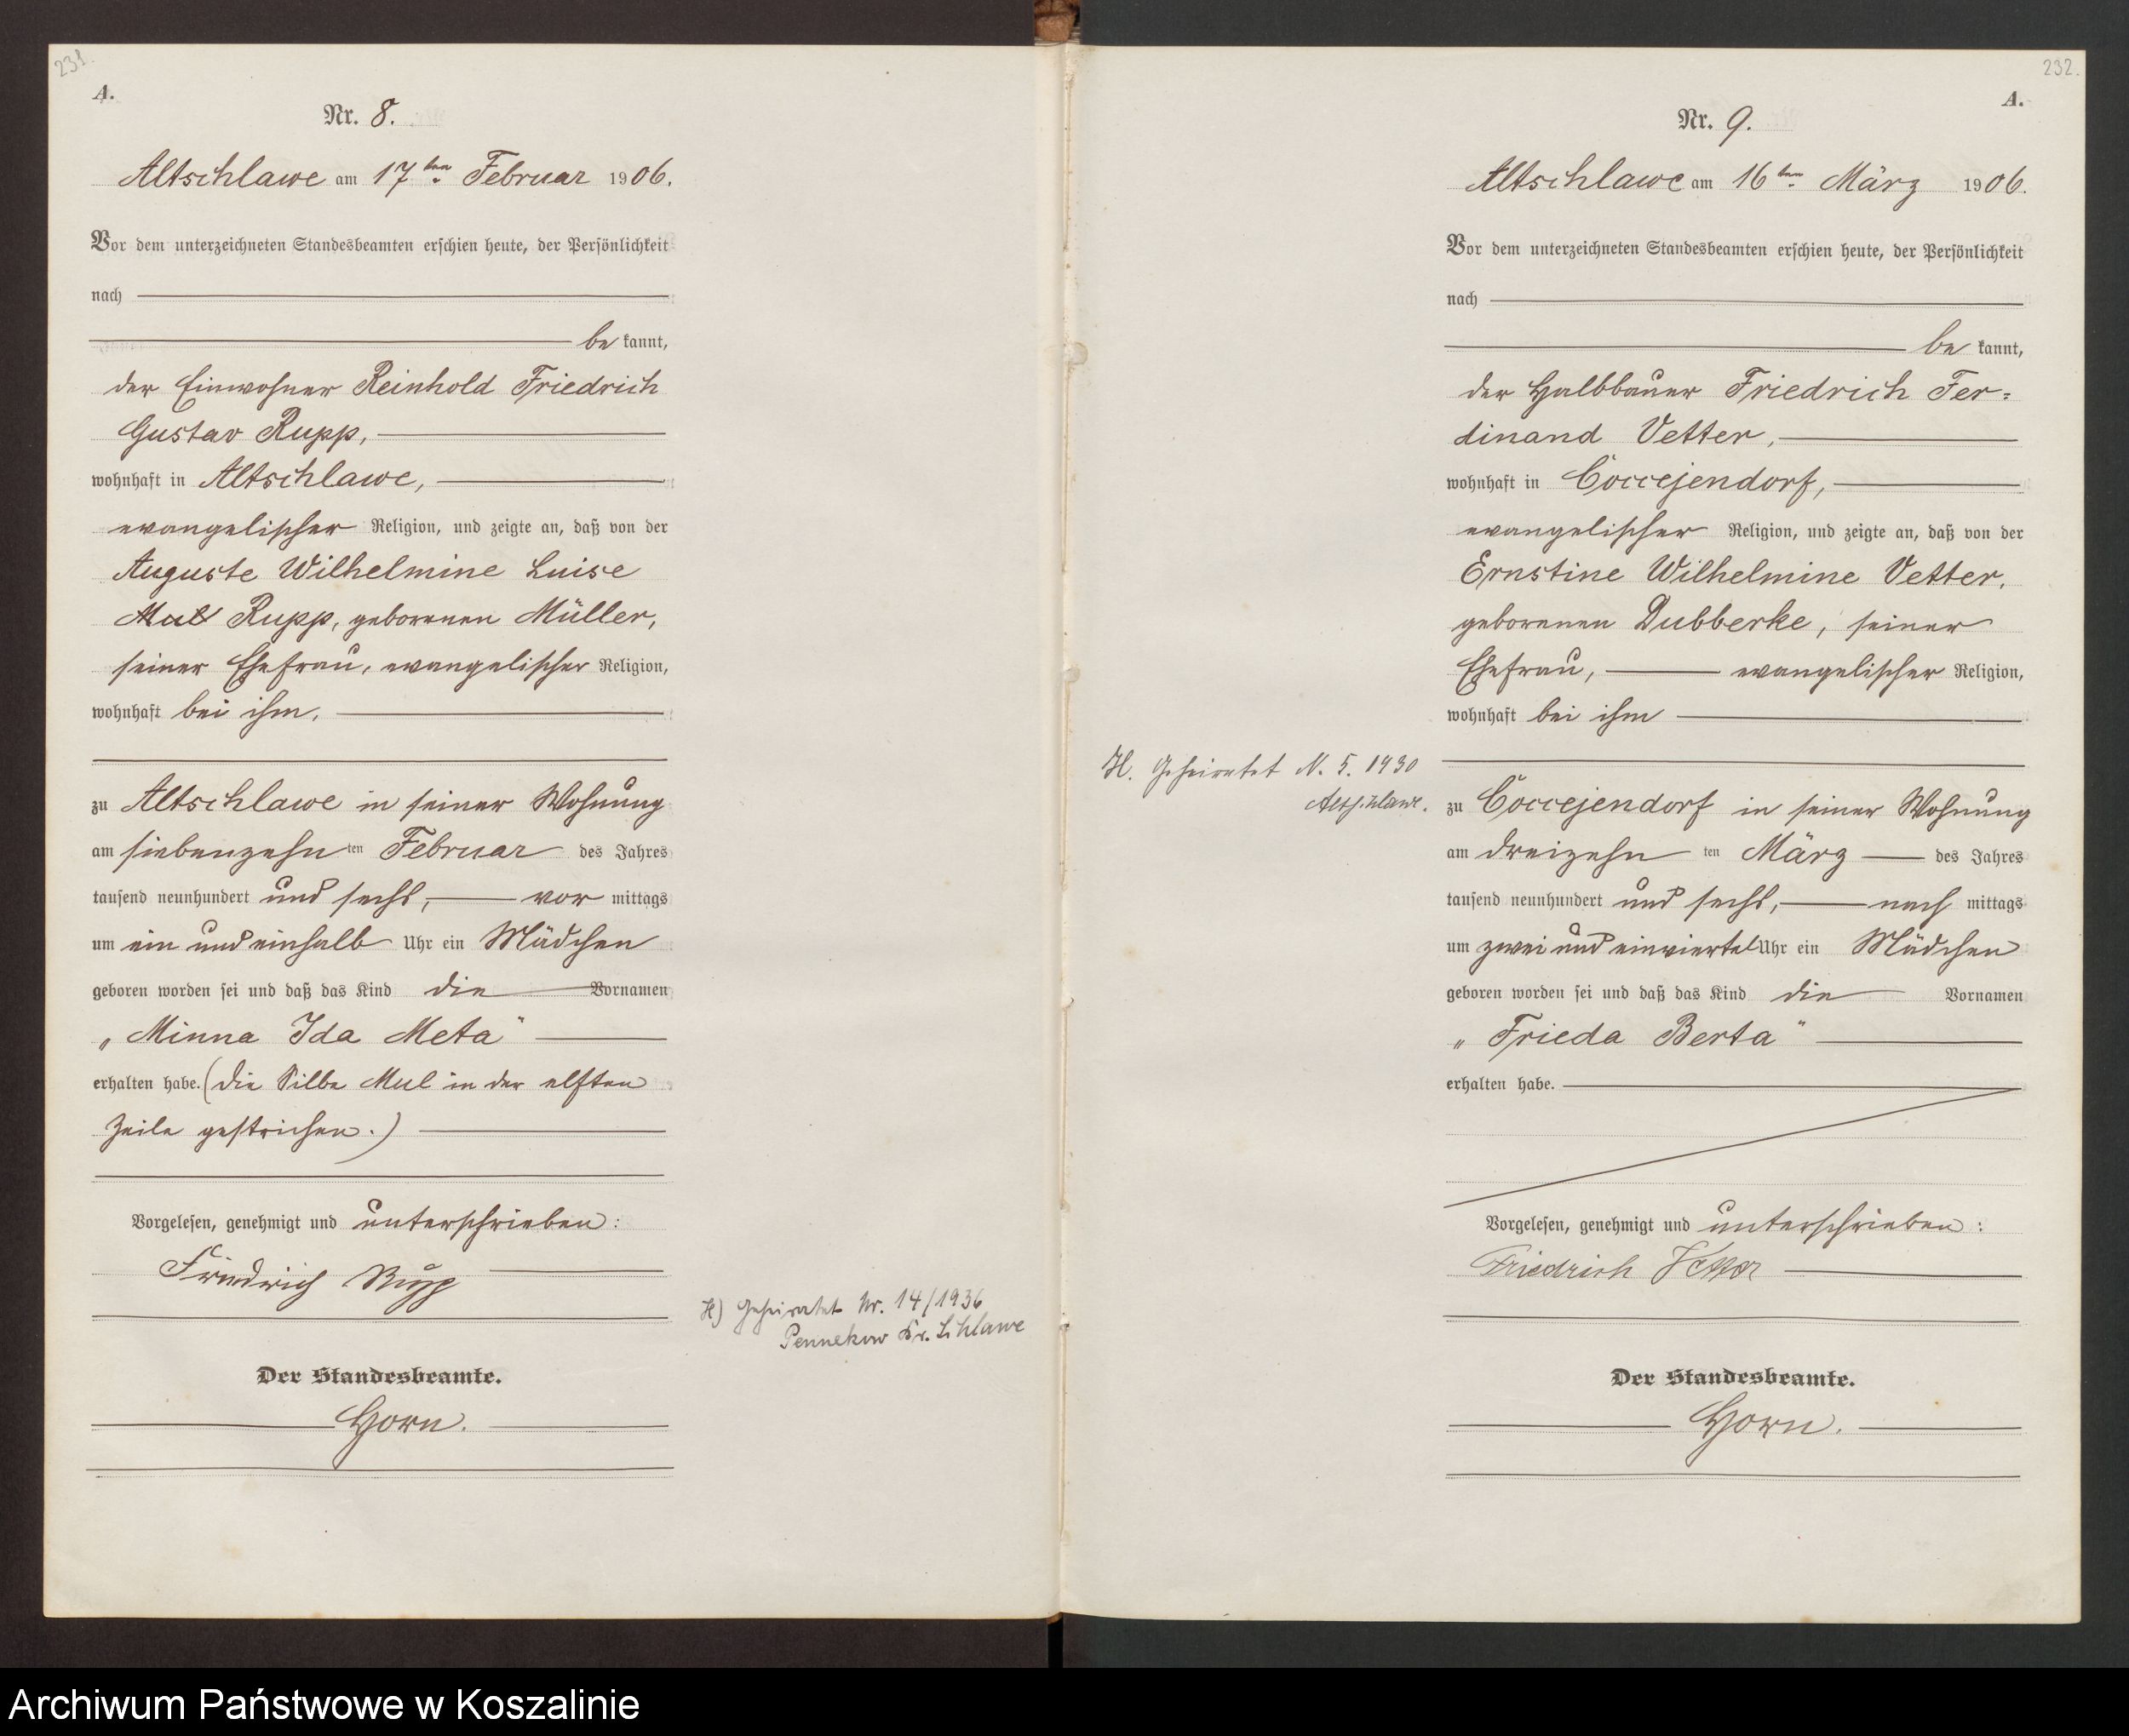 231.
A.
Nr. 8.
Altschlawe am 17ten Februar 1906.
Vor dem unterzeichneten Standesbeamten erschien heute, der Persönlichkeit
nach
be kannt,
der Einwohner Reinhold Friedrich
Gustav Rupp,
wohnhaft in Altschlawe,
evangelischer Religion, und zeigte an, daß von der
Auguste Wilhelmine Luise
Mul Rupp, geborenen Müller,
seiner Ehefrau, evangelischer Religion,
wohnhaft bei ihm,
zu Altschlawe in seiner Wohnung
am siebenzehn ten Februar des Jahres
tausend neunhundert und sechs, vor mittags
um ein und einhalb Uhr ein Mädchen
geboren worden sei und daß das Kind die Vornamen
„Minna Ida Meta“
erhalten habe. (Die Silbe Mul in der elften
Zeile gestrichen.)
Vorgelesen, genehmigt und unterschrieben:
Friedrich Rupp
H) Geheiratet Nr. 14/1936
Pennekow Kr. Schlawe
Der Standesbeamte.
Horn.
232.
A.
Nr. 9.
Altschlawe am 16ten März 1906.
Vor dem unterzeichneten Standesbeamten erschien heute, der Persönlichkeit
nach
be kannt,
der Halbbauer Friedrich Fer=
dinand Vetter,
wohnhaft in Coccejendorf,
evangelischer Religion, und zeigte an, daß von der
Ernstine Wilhelmine Vetter,
geborenen Dubberke, seiner
Ehefrau, evangelischer Religion,
wohnhaft bei ihm
H. Geheiratet N. 5. 1930
Altschlawe.
zu Coccejendorf in seiner Wohnung
am dreizehn ten März des Jahres
tausend neunhundert und sechs, nach mittags
um zwei und einviertel Uhr ein Mädchen
geboren worden sei und daß das Kind die Vornamen
„Frieda Berta“
erhalten habe.
Vorgelesen, genehmigt und unterschrieben:
Friedrich Vetter
Der Standesbeamte.
Horn.
Archiwum Państwowe w Koszalinie